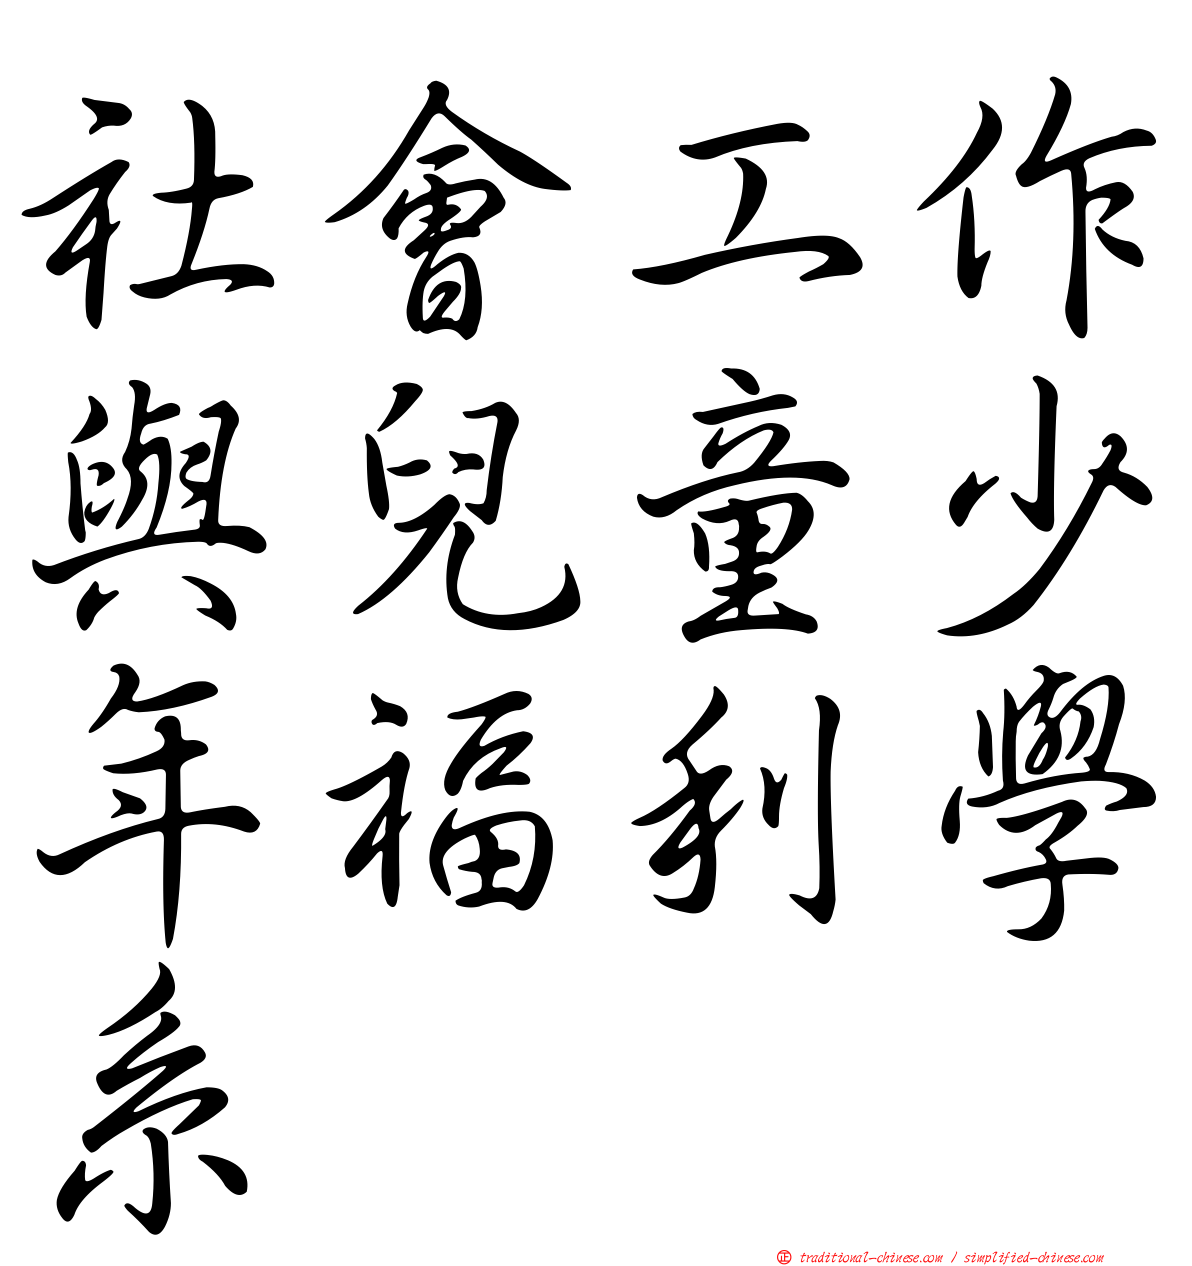 社會工作
與兒童少
年福利學
系
㊣ traditional-chinese.com / simplified-chinese.com